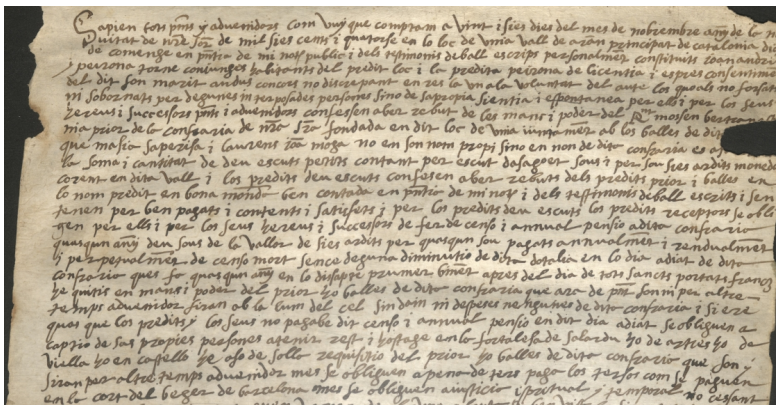 Sapien tots pnts y advenidors com vuy que comptam a vint i sies dies del mes de nobrembre any de la n
tivitat de nre Sor de mil sies cents i quatorse en lo loc de vnia vall de aran principat de catalonia dio
de comenge en pntia de mi notr public i dels testimonis deball escrips personalmet constituits Joan andri
y peirona torne coniunges habitants del predit loc i la predita peirona de licentia i espres consentime
del dit son marit amdos concors no discrepant en res la vna la voluntat del autre los quals no forsats
ni sobornats per degunes interposades persones sino de sa propia sientia i espontanea per ells i per los seus
hereus i successors pnts i advenidors confessen aber rebut de les mans i poder del Rt mossen bertran
mia prior de la confraria de nra Sra fondada en dit loc de vnia iuntamet ab los balles de dit
que ma sia saperisa i laurens Joa moga no en son nom propi sino en non de dita confraria es as
la soma i cantitat de deu escuts petits contant per escut dasaget sous i per sou sies ardits moned
corent en dita vall i los predits deu escuts confesen aber rebuts dels predits prior i balles en
lo nom predit en bona moneda ben contada en pntia de mi notr i dels testimonis deball escrits i sen
tenen per ben pagats i contents i satisfets i per los predits deu escuts los predits receptors se obli
gen per ells i per los seus hereus i successors de fer de censo i annual pensio a dita confraria
quasqun any deu sous de la vallor de sies ardits per quasqun sou pagats annualmet i rendualmet
i per petualmet de censo mort sensa deguna diminutio de dita dotalia en lo dia adiat de dita
confraria ques fa quasqun any en lo disapte prumer vinet apres del dia de tots sancts portats francs
he quitis en mans i poder del prior ho balles de dita confraria que ara de pnt son ni per altre
temps advenidor siran ab la lum del cel sin dam ni depeses negutives de dita confraria i si ere
quas que los predits y los seus no pagabe dit censo i annual pensio en dit dia adiat se obliguen a
captio de sas propies persones a tenir rest i hostage en la fortalesa de salardu ho de arties ho de
viella ho en casello he aso de sollo requisitio del prior ho balles de dita confraria que son y
siran per altre temps advenidor mes se obliguen a pena de ters paga los tersos com se paguen
en la cort del beger de barcelona mes se obliguen a iusticia ispiritual y temporal no cessant